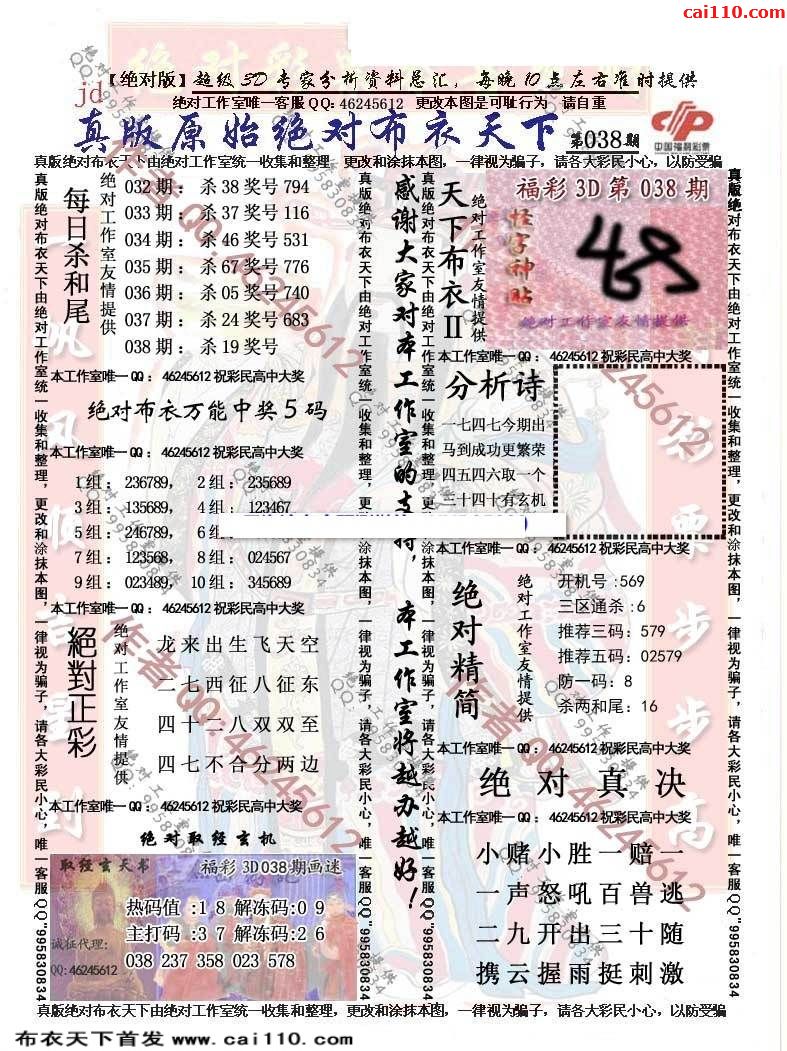 cai110.com
【绝对版】超级3D专家分析资料总汇，每晚10点左右准时提供
jd
绝对工作室唯一客服QQ: 46245612 更改本图是可耻行为 请自重
真版原始绝对布衣天下 第038期
中国福利彩票
真版绝对布衣天下由绝对工作室统一收集和整理，更改和涂抹本图，一律视为骗子，请各大彩民小心，以防受骗
真版绝对布衣天下由绝对工作室统一收集和整理，更改和涂抹本图，一律视为骗子，请各大彩民小心，唯一客服QQ"995830834
每日杀和尾
绝对工作室友情提供
032期：杀38奖号794
033期：杀37奖号116
034期：杀46奖号531
035期：杀67奖号776
036期：杀05奖号740
037期：杀24奖号683
038期：杀19奖号
本工作室唯一QQ：46245612祝彩民高中大奖
绝对布衣万能中奖5码
本工作室唯一QQ：46245612祝彩民高中大奖
1组：236789， 2组：235689
3组：135689， 4组：123467
5组：246789， 6组
7组：123568， 8组：024567
9组：023489， 10组：345689
本工作室唯一QQ：46245612祝彩民高中大奖
絕對正彩
绝对工作室友情提供
龙来出生飞天空
二七西征八征东
四十二八双双至
四七不合分两边
本工作室唯一QQ：46245612祝彩民高中大奖
绝对取经玄机
取经玄天书
福彩3D038期画迷
热码值：18解冻码:09
主打码：37解冻码:26
038 237 358 023 578
诚征代理:
QQ:46245612
真版绝对布衣天下由绝对工作室统一收集和整理，更改和涂抹本图，一律视为骗子，请各大彩民小心，唯一客服QQ"995830834
感谢大家对本工作室的支持，本工作室将越办越好！
真版绝对布衣天下由绝对工作室统一收集和整理，更改和涂抹本图，一律视为骗子，请各大彩民小心，唯一客服QQ"995830834
天下布衣II
绝对工作室友情提供
福彩3D第038期
怪字神贴
绝对工作室友情提供
本工作室唯一QQ：46245612祝彩民高中大奖
分析诗
一七四七今期出
马到成功更繁荣
四五四六取一个
三十四十有玄机
本工作室唯一QQ：46245612祝彩民高中大奖
绝对精简
绝对工作室友情提供
开机号:569
三区通杀:6
推荐三码:579
推荐五码:02579
防一码:8
杀两和尾:16
本工作室唯一QQ：46245612祝彩民高中大奖
绝对真决
本工作室唯一QQ：46245612祝彩民高中大奖
小赌小胜一赔一
一声怒吼百兽逃
二九开出三十随
携云握雨挺刺激
真版绝对布衣天下由绝对工作室统一收集和整理，更改和涂抹本图，一律视为骗子，请各大彩民小心，唯一客服QQ"995830834
真版绝对布衣天下由绝对工作室统一收集和整理，更改和涂抹本图，一律视为骗子，请各大彩民小心，以防受骗
布衣天下首发 www.cai110.com